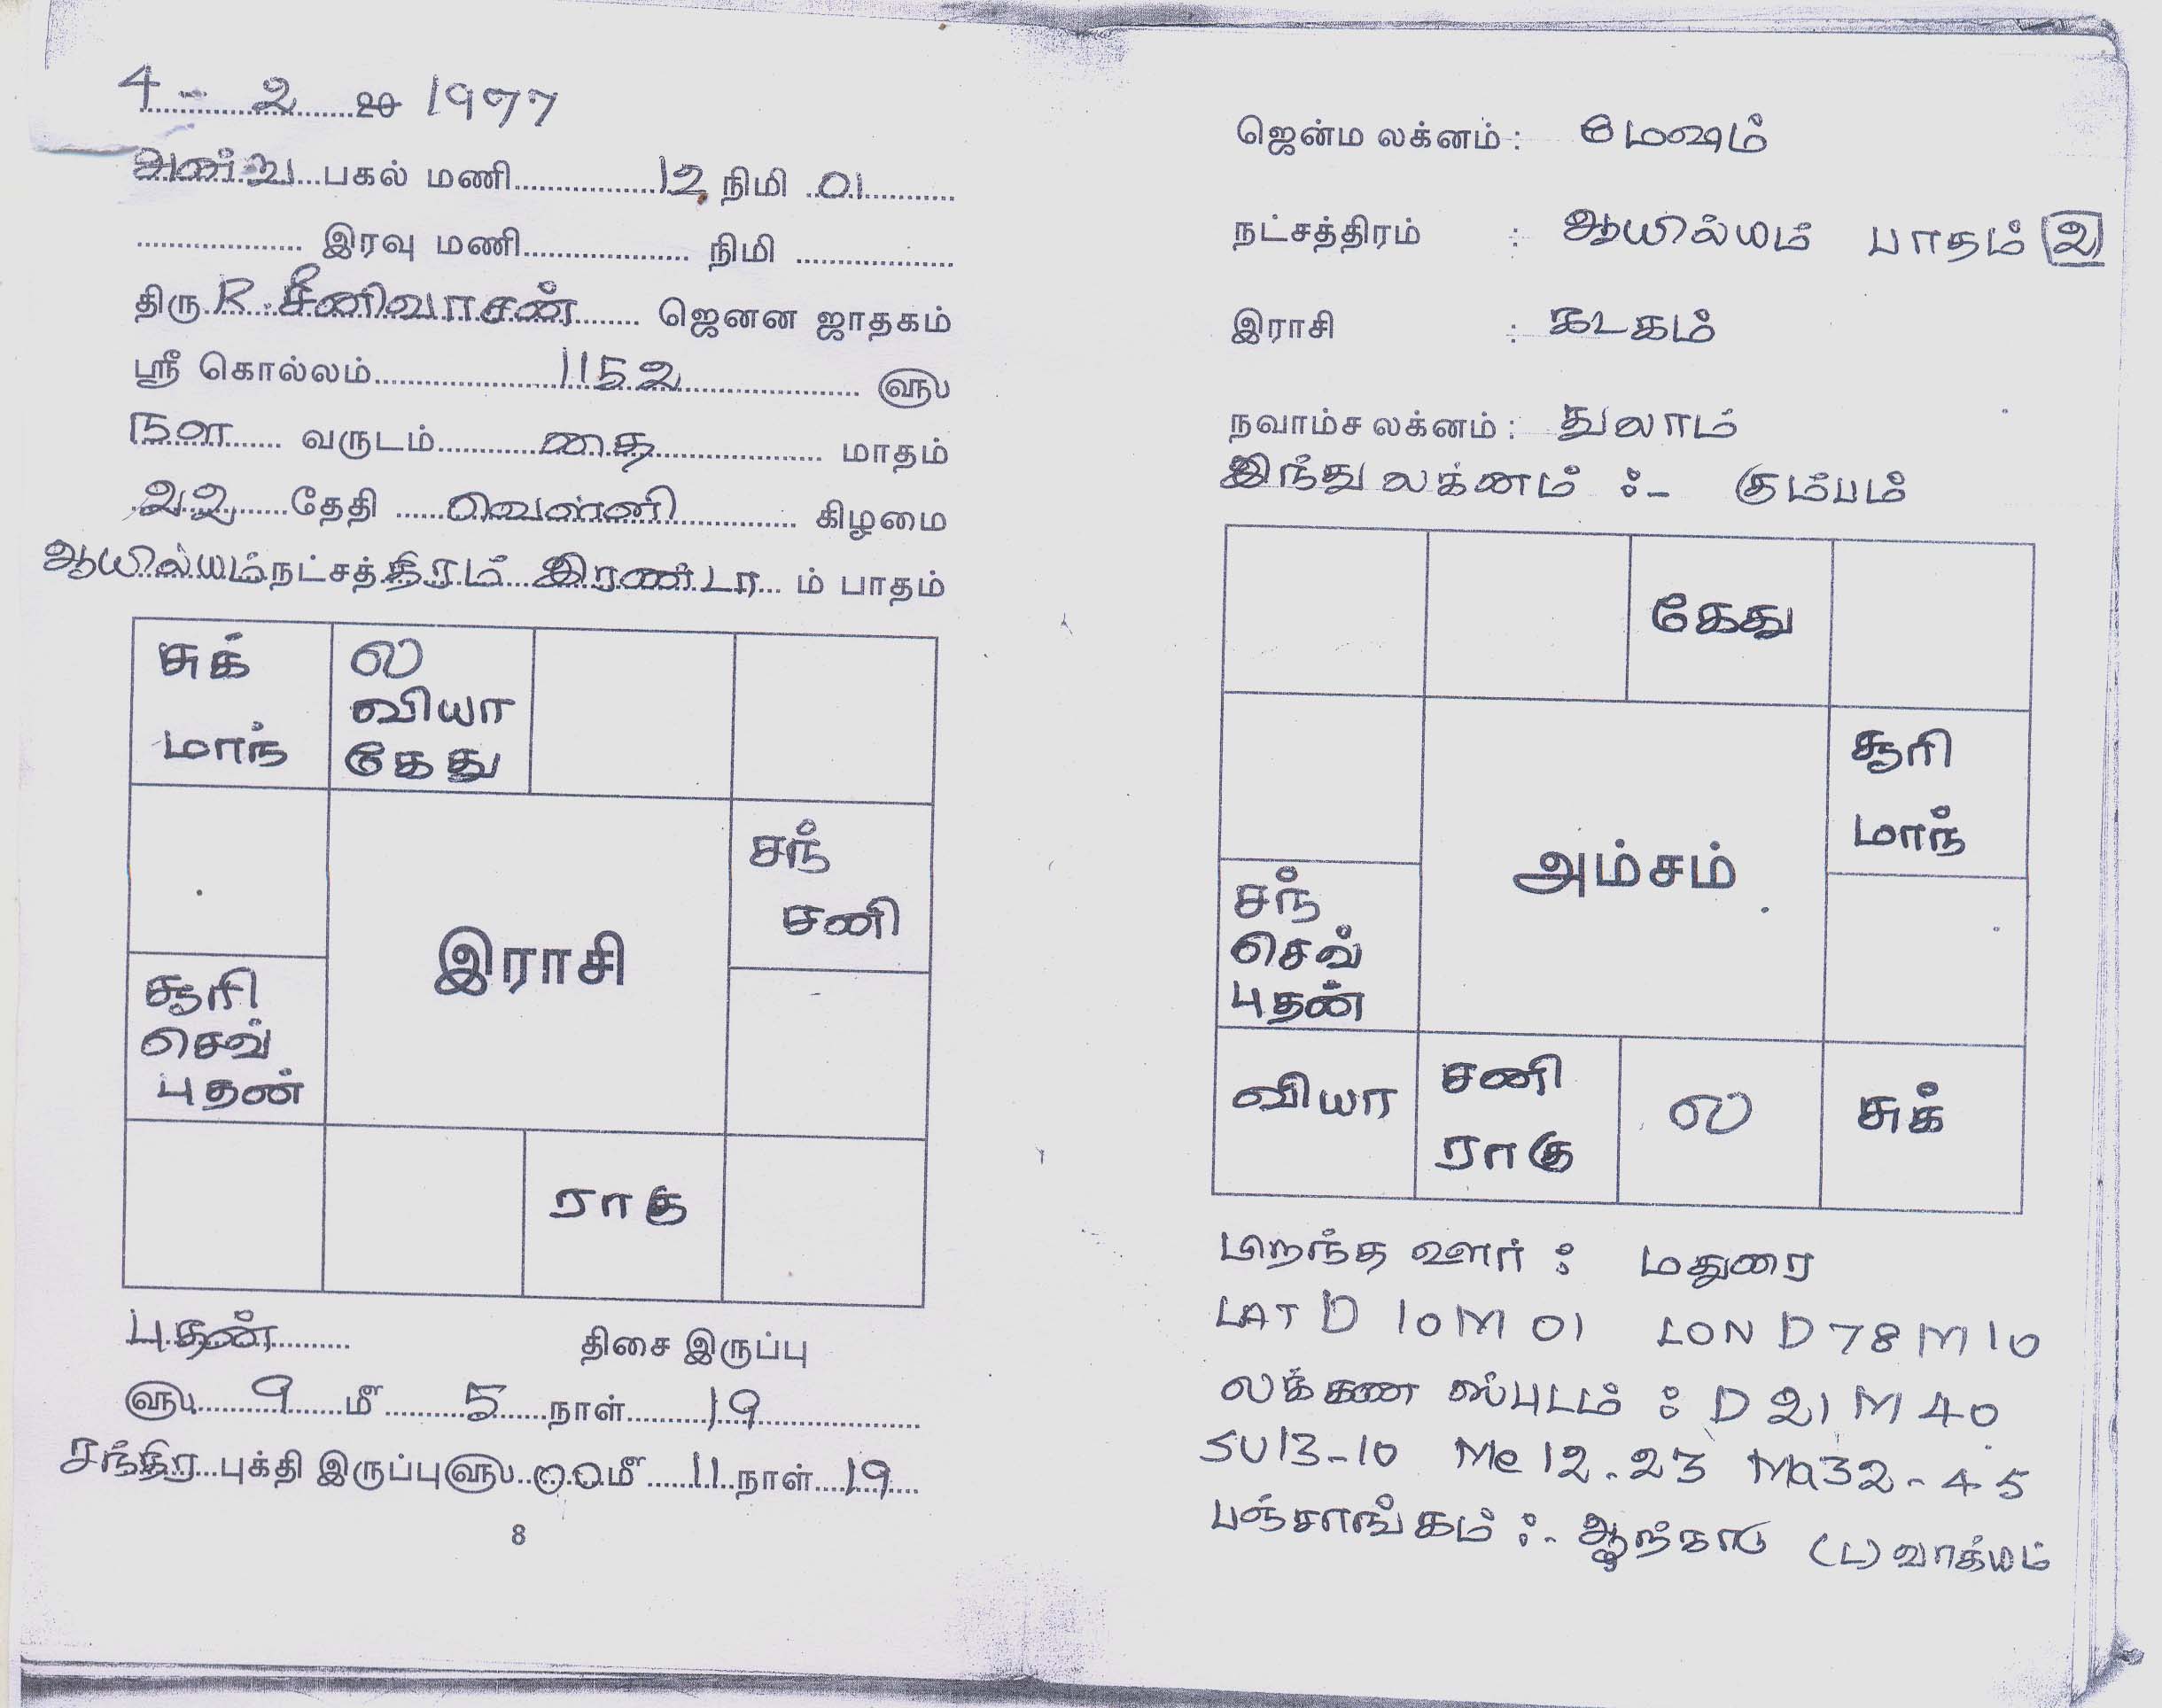 4 - 2 1977
அன்று பகல் மணி 12 நிமி 01
இரவு மணி நிமி
திரு R. சீனிவாசன் ஜெனன ஜாதகம்
ஸ்ரீ கொல்லம் 1152 ௵
நள வருடம் தை மாதம்
22 தேதி வெள்ளி கிழமை
ஆயில்யம் நட்சத்திரம் இரண்டா ம் பாதம்
சுக்
மாந்
ல
வியா
கேது
சந்
சனி
இராசி
சூரி
செவ்
புதன்
ராகு
புதன் திசை இருப்பு
௵ 9 மீ 5 நாள் 19
சந்திர புக்தி இருப்பு ௵ 00 மீ 11 நாள் 19
8
ஜென்ம லக்னம் : மேஷம்
நட்சத்திரம் : ஆயில்யம் பாதம் 2
இராசி : கடகம்
நவாம்ச லக்னம் : துலாம்
இந்து லக்னம் :- கும்பம்
கேது
சூரி
மாந்
அம்சம்
சந்
செவ்
புதன்
வியா
சனி
ராகு
ல
சுக்
பிறந்த ஊர் : மதுரை
LAT D 10 M 01 LON D 78 M 10
லக்கண ஸ்புடம் : D 21 M 40
SU 13-10 Me 12-23 Ma 32-45
பஞ்சாங்கம் :- ஆற்காடு (L) வாக்யம்